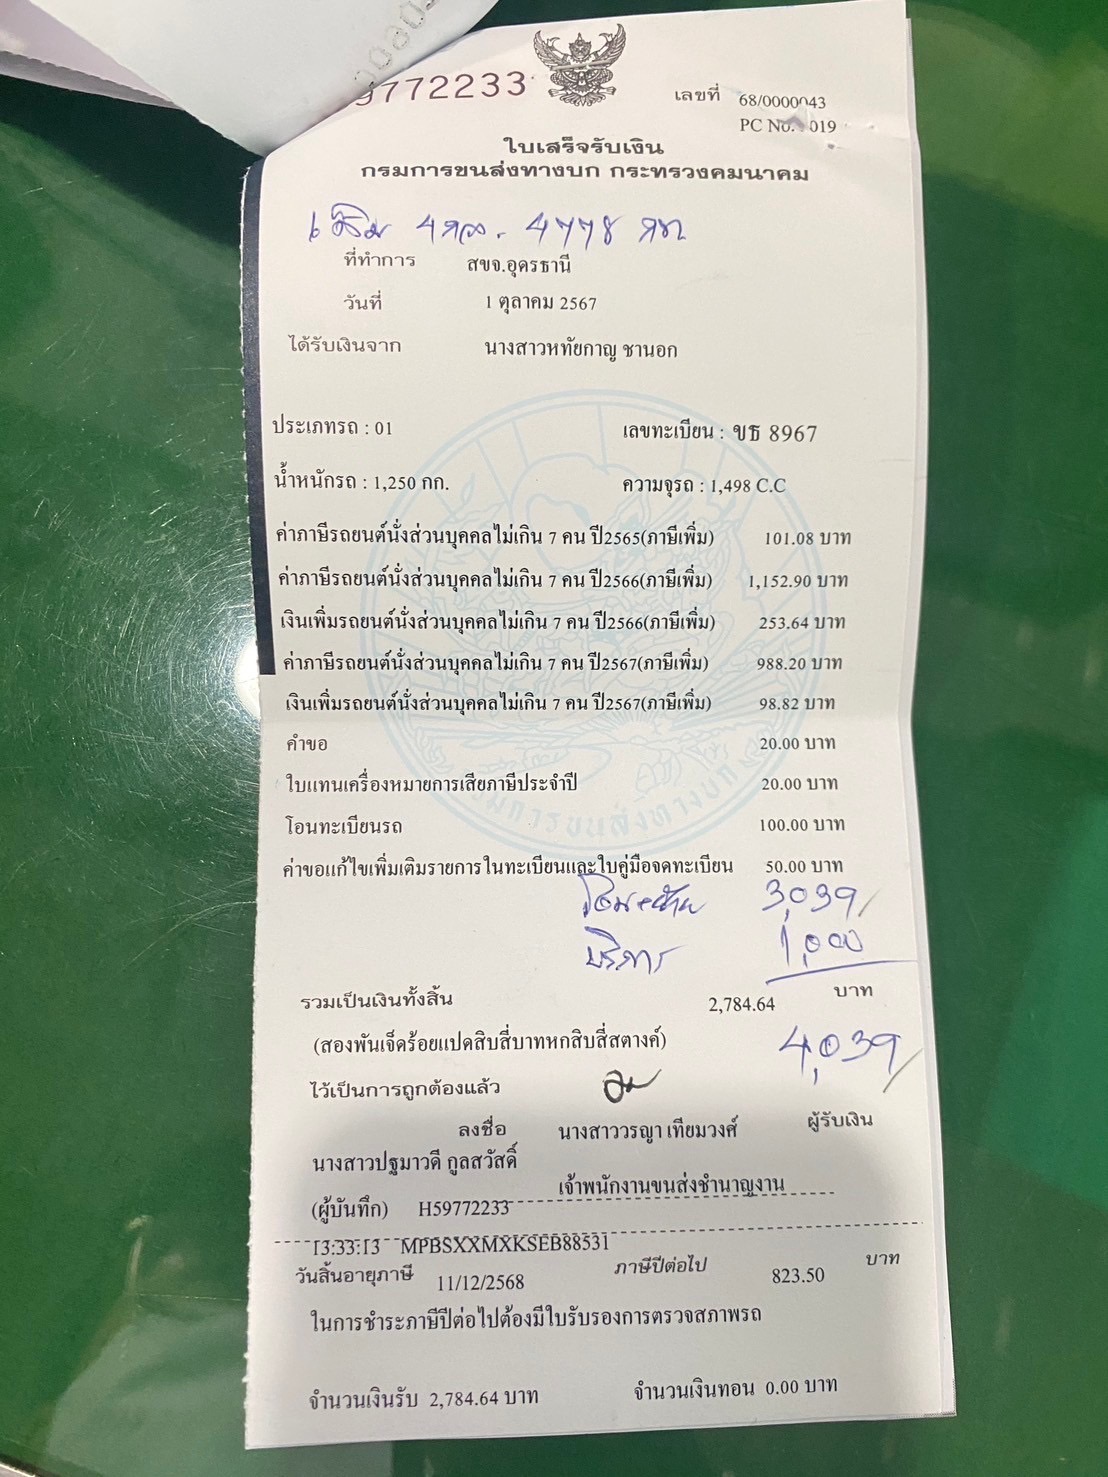 9772233
เลขที่ 68/0000043
PC No. 019
ใบเสร็จรับเงิน
กรมการขนส่งทางบก กระทรวงคมนาคม
4778 กท
ที่ทำการ สขจ.อุดรธานี
วันที่ 1 ตุลาคม 2567
ได้รับเงินจาก นางสาวหทัยกาญ ชานอก
ประเภทรถ : 01 เลขทะเบียน : ขธ 8967
น้ำหนักรถ : 1,250 กก. ความจุรถ : 1,498 C.C
ค่าภาษีรถยนต์นั่งส่วนบุคคลไม่เกิน 7 คน ปี2565(ภาษีเพิ่ม) 101.08 บาท
ค่าภาษีรถยนต์นั่งส่วนบุคคลไม่เกิน 7 คน ปี2566(ภาษีเพิ่ม) 1,152.90 บาท
เงินเพิ่มรถยนต์นั่งส่วนบุคคลไม่เกิน 7 คน ปี2566(ภาษีเพิ่ม) 253.64 บาท
ค่าภาษีรถยนต์นั่งส่วนบุคคลไม่เกิน 7 คน ปี2567(ภาษีเพิ่ม) 988.20 บาท
เงินเพิ่มรถยนต์นั่งส่วนบุคคลไม่เกิน 7 คน ปี2567(ภาษีเพิ่ม) 98.82 บาท
คำขอ 20.00 บาท
ใบแทนเครื่องหมายการเสียภาษีประจำปี 20.00 บาท
โอนทะเบียนรถ 100.00 บาท
ค่าขอแก้ไขเพิ่มเติมรายการในทะเบียนและใบคู่มือจดทะเบียน 50.00 บาท
โอน+ย้าย 3,039/
บริการ 1,000
รวมเป็นเงินทั้งสิ้น 2,784.64 บาท
(สองพันเจ็ดร้อยแปดสิบสี่บาทหกสิบสี่สตางค์) 4,039/
ไว้เป็นการถูกต้องแล้ว
ลงชื่อ นางสาววรญา เทียมวงศ์ ผู้รับเงิน
นางสาวปฐมาวดี กูลสวัสดิ์ เจ้าพนักงานขนส่งชำนาญงาน
(ผู้บันทึก) H59772233
13:33:13 MPBSXXMXKSEB88531
วันสิ้นอายุภาษี 11/12/2568 ภาษีปีต่อไป 823.50 บาท
ในการชำระภาษีปีต่อไปต้องมีใบรับรองการตรวจสภาพรถ
จำนวนเงินรับ 2,784.64 บาท จำนวนเงินทอน 0.00 บาท